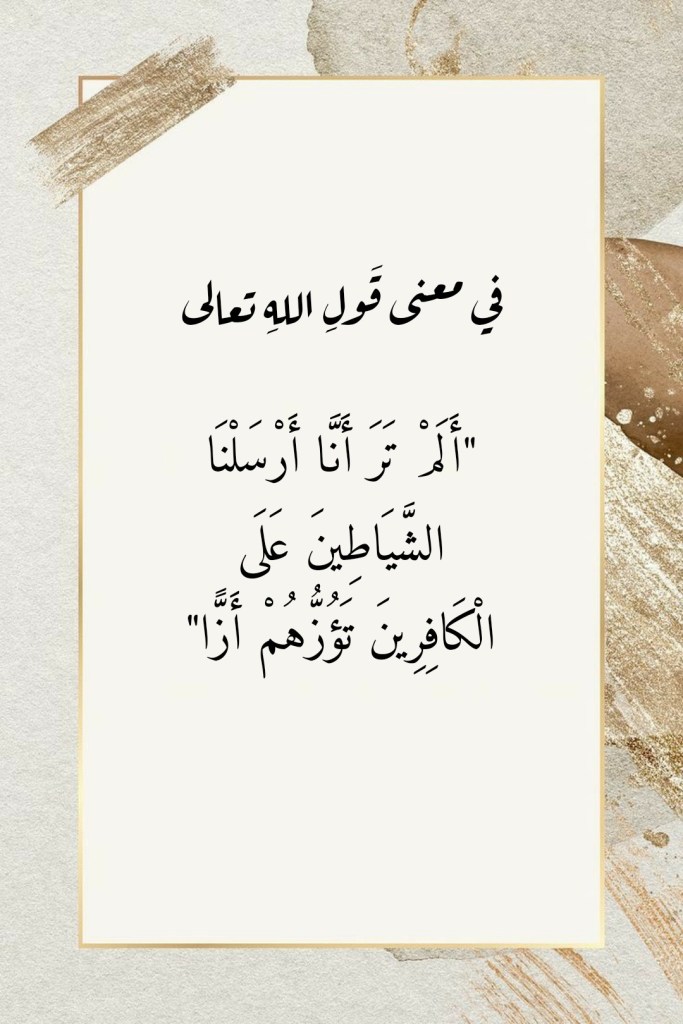 في معنى قَولِ اللهِ تعالى
"أَلَمْ تَرَ أَنَّا أَرْسَلْنَا
الشَّيَاطِينَ عَلَى
الْكَافِرِينَ تَؤُزُّهُمْ أَزًّا"